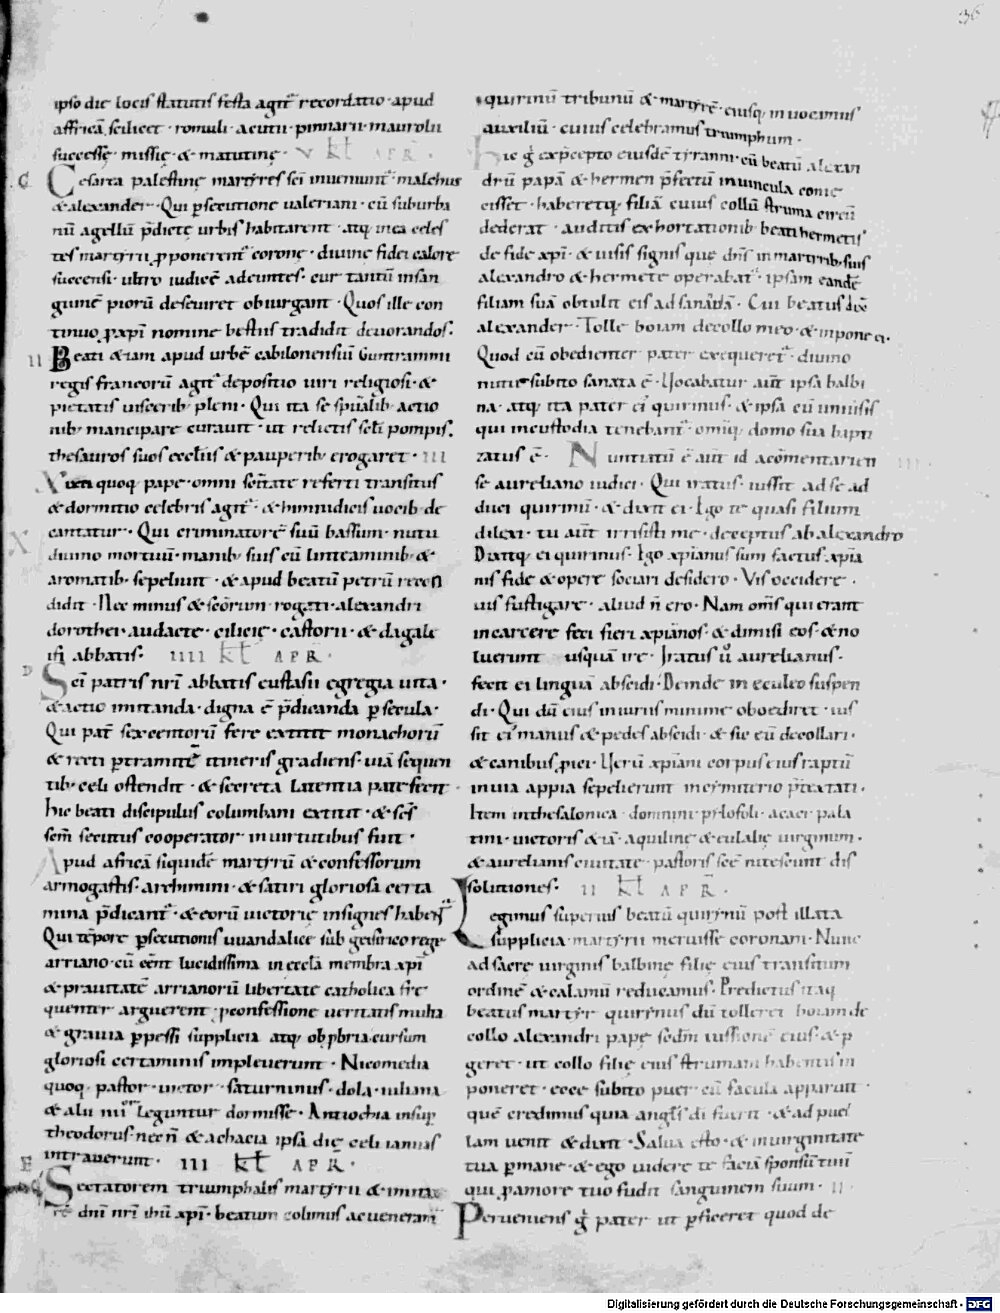 36
ipso die locis statutis festa agit͛ recordatio · apud
affricā scilicet · romuli · acutu · pinnarii · maurolii
successę · missię · & matutinę · V kƚ APR̄ ·
C Cesarea palestinę martyres sc̄i inueniunt͛ · malchus
& alexander · Qui ꝑsecutione ualeriani · cū suburba
nū agellū p̄dictę urbis habitarent · atq; in ea celes
tes martyrii ꝓponerent͛ coronę · diuinę fidei calore
succensi · ultro iudicē adeuntes · cur tantū in san
guinē piorū deseuiret obiurgant · Quos ille con
tinuo ꝓ xp̄i nomine bestiis tradidit deuorandos ·
II Beati &iam apud urbē cabilonensiū Guntrammi
regis francorū agit͛ depositio uiri religiosi · &
pietatis uiscerib; pleni · Qui ita se sp̄ualib; actio
nib; mancipare curauit · ut relictis sc̄li pompis ·
thesauros suos ęccl̄iis & pauperib; erogaret · III
Xisti quoq; pape · omni sc̄itate referti transitus
& dormitio celebris agit͛ · & himnidicis uocib; de
cantatur · Qui criminatorē suū bassum · nutu
diuino mortuū · manib; suis cū linteaminib; &
aromatib; sepeliuit · & apud beatū petrū recon
didit · Nec minus & sc̄orum · rogati · alexandri
dorothei · audacte · cilicię · castorii · & dagale
ifi abbatis · IIII kƚ APR ·
D Sc̄i patris nr̄i abbatis eustasii egregia uita ·
& actio imitanda · digna ē p̄dicanda ꝑ secula ·
Qui pat̄ sexcentorū fere extitit monachorū
& recti ꝑ tramitē itineris gradiens · uiā sequen
tib; celi ostendit · & secreta latentia patefecit ·
hic beati discipulus columbani extitit · & sc̄s
semꝑ secutus cooperator in uirtutibus fuit ·
Apud africā siquidē martyrū & confessorum
armogastis · archimini · & satiri gloriosa certa
mina p̄dicant͛ · & eorū uictorię insignes habent͛
Qui tēpore ꝑsecutionis uuandalicę sub geiserico rege
arriano · cū eēnt lucidissima in ęccl̄a membra xp̄i
& prauitatē arrianorū libertate catholica fre
quenter arguerent · ꝓ confessione ueritatis multa
& grauia ꝑpessi supplicia atq; obprobria cursum
gloriosi certaminis impleuerunt · Nicomedia
quoq; pastor · uictor · saturninus · dola · iuliana
& alii nu͛ leguntur dormisse · Antiochia in sup
theodorus · necn̄ & achacia ipsa die celi ianuas
intrauerunt · III kƚ APR̄ ·
E Sectatorem triumphalis martyrii & imita
rē dn̄i nr̄i ih̄u xp̄i · beatum colimus ac ueneramur
quirinū tribunū & martyrē · eiusq; inuocamus
auxiliū · cuius celebramus triumphum ·
hic g̊ ex p̄cepto eiusdē tyranni · cū beatū alexan
drū papā & hermen p̄fectū in uincula conie
cisset · haberetq; filiā cuius collū struma circū
dederat · auditis exhortationib; beati hermetis
de fide xp̄i · & uisis signis quę dn̄s in martyrib; suis
alexandro & hermete operabat͛ · ipsam eandē
filiam suā obtulit eis ad sanādā · Cui beatus dix̄
alexander · Tolle boiam de collo meo · & impone ei ·
Quod cū obedienter pater exequeret͛ · diuino
nutu subito sanata ē · Uocabatur aūt ipsa balbi
na · atq; ita pater ei͛ quirinus · & ipsa cū uniuersis
qui in custodia tenebant͛ · omiq; domo sua bapti
zatus ē · Nuntiatū ē aūt id a comentarien III
se aureliano iudici · Qui iratus · iussit ad se ad
duci quirinū · & dixit ei · Ego te quasi filium
dilexi · tu aūt irrisisti me · deceptus ab alexandro
Dixitq; ei quirinus · Ego xp̄ianus sum factus · xp̄ia
nis fide & opere sociari desidero · Vis occidere ·
uis fustigare · aliud n̄ ero · Nam om̄s qui erant
in carcere feci fieri xp̄ianos · & dimisi eos · & no
luerunt usquā ire · Iratus ů aurelianus ·
fecit ei linguā abscidi · Deinde in eculeo suspen
di · Qui dū eius iniuriis minime oboediret · ius
sit ei͛ manus & pedes abscidi · & sic eū decollari ·
& canibus ꝓici · Uerū xp̄iani corpus eius raptū
in uia appia sepelierunt in cymiterio p̄textati ·
Item in thesalonica · domnini · phylosoli · acaei · pala
tini · uictoris & ia · aquilinę & eulalię uirginum ·
& aurelianis ciuitate · pastoris sc̄ę nitescunt dis
solutiones · II kƚ APR̄ ·
Legimus superius beatū quirinū post illata
supplicia · martyrii meruisse coronam · Nunc
ad sacrę uirginis balbinę filię eius transitum
ordinē & calamū reducamus · Predictus itaq;
beatus martyr quirinus dū tolleret boiam de
collo alexandri papę sedm̄ iussionē eius · & ꝑ
geret · ut collo filię eius strumam habentis in
poneret · ecce subito puer cū facula apparuit ·
quē credimus quia angl̄s di fuerit · & ad puel
lam uenit & dixit · Salua esto · & in uirginitate
tua ꝑmane · & ego uidere te faciā sponsū tuū
qui ꝓ amore tuo fudit sanguinem suum · II
Perueniens g̊ pater ut ꝑficeret quod de
Digitalisierung gefördert durch die Deutsche Forschungsgemeinschaft - DFG